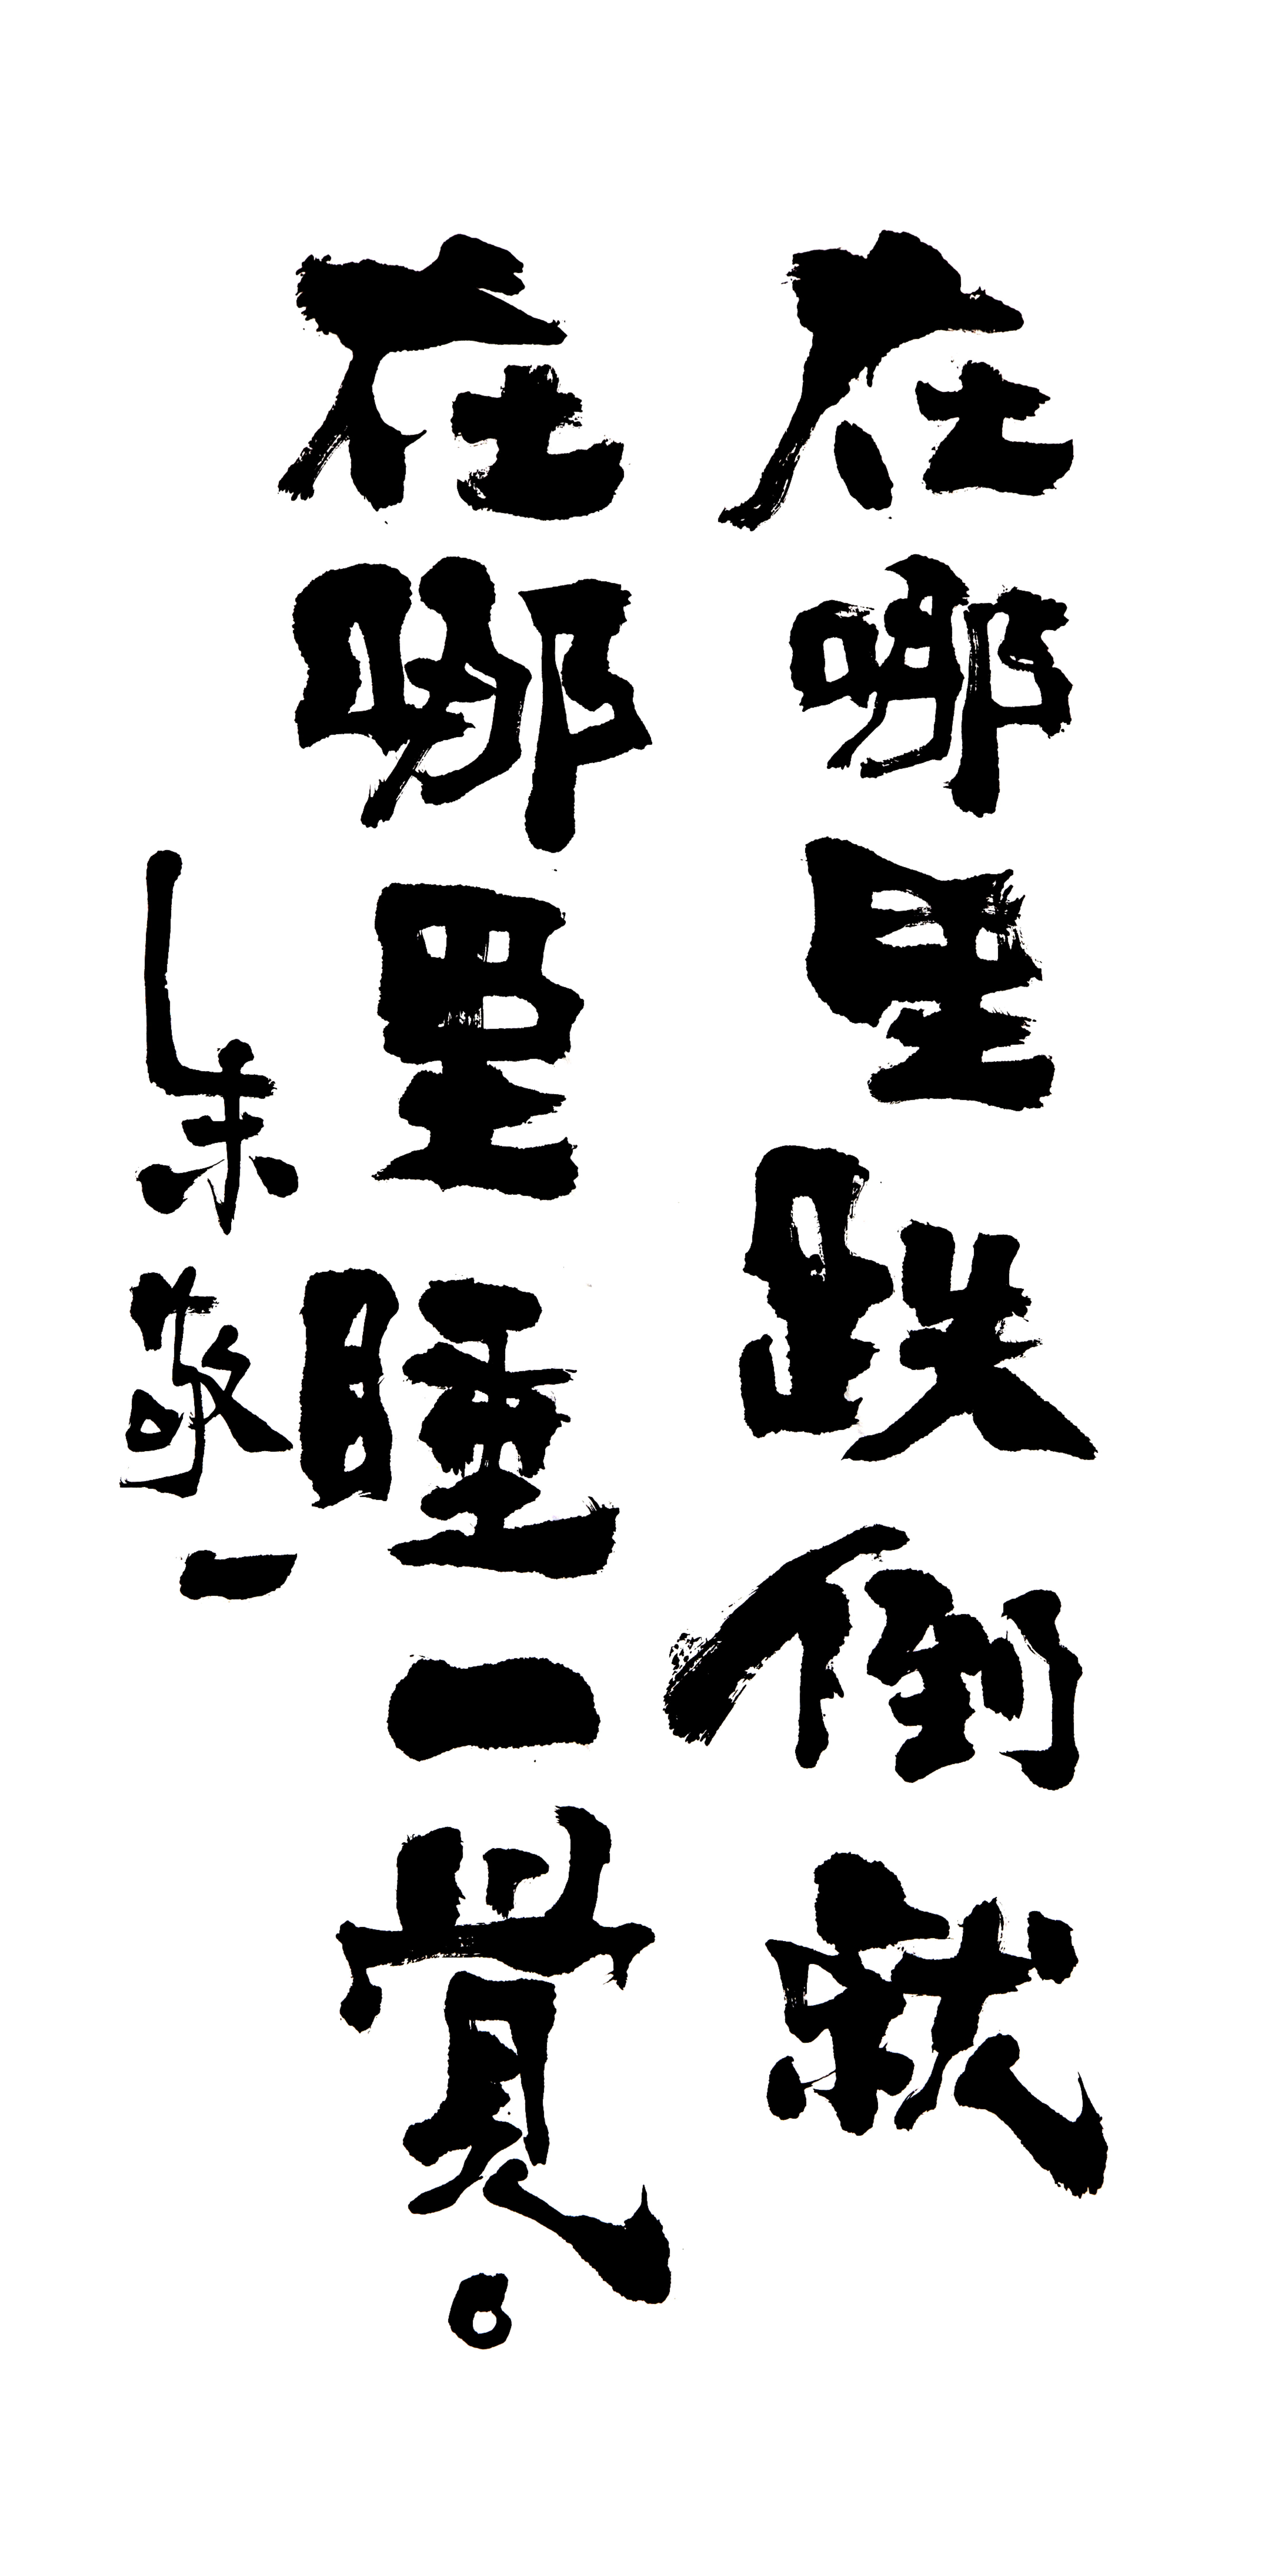 在哪里跌倒就
在哪里睡一覺。
朱敬一